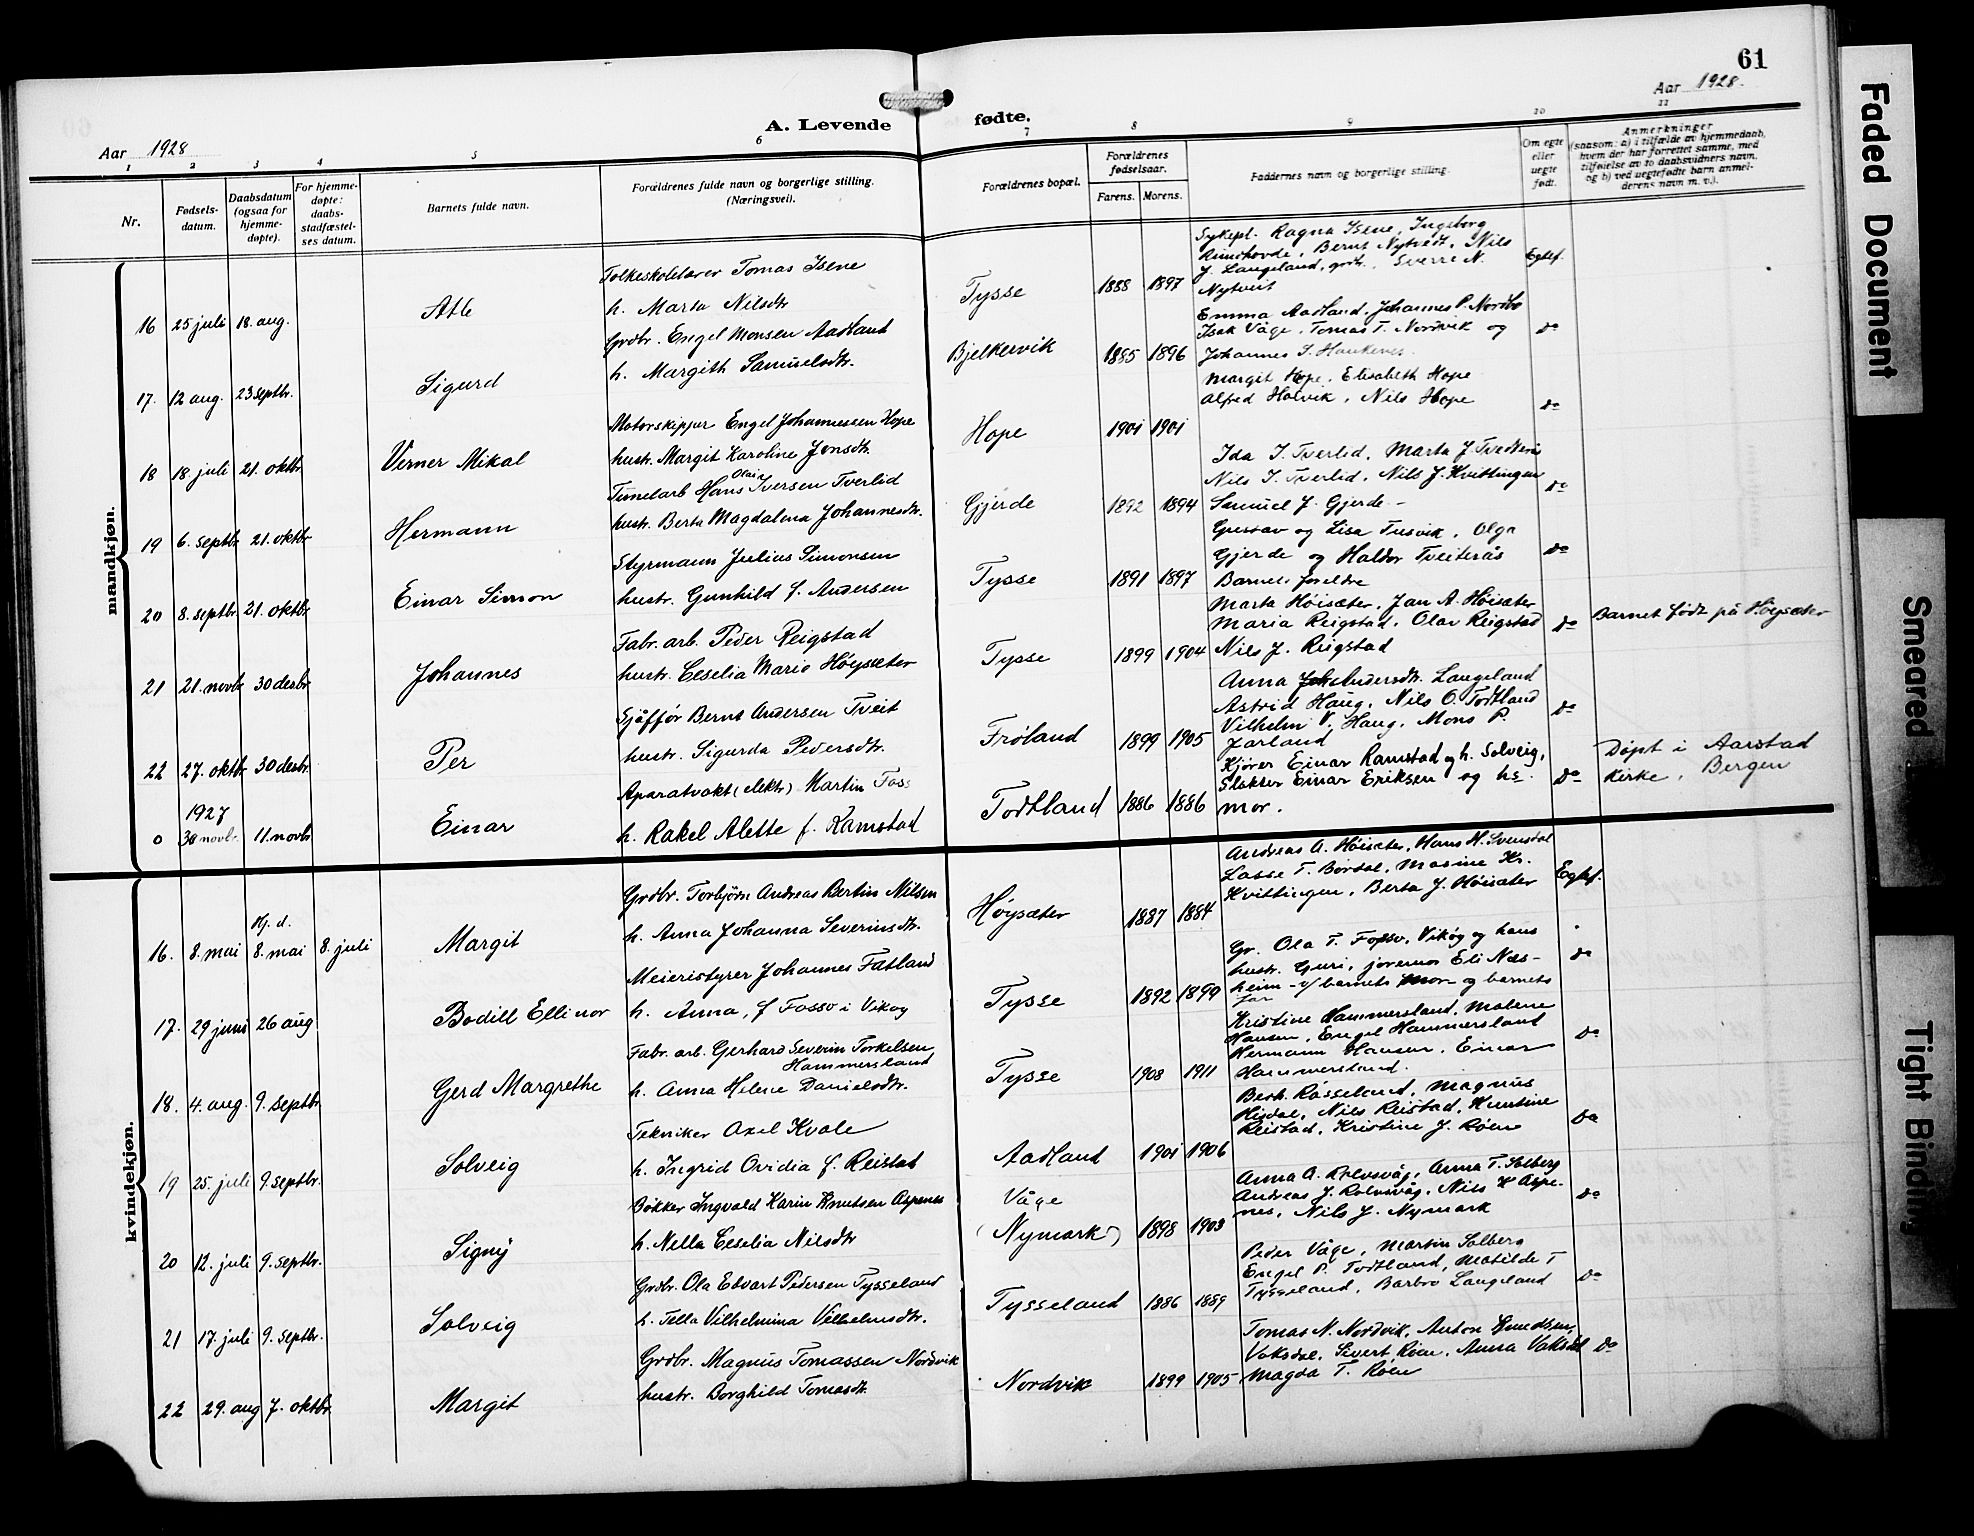 61
Aar 1928
Aar 1928.
A. Levende fødte.
1 2 3 4 5 6 7 8 9 10 11
Nr.
Fødsels-
datum.
Daabsdatum
(ogsaa for
hjemme-
døpte).
For hjemme-
døpte:
daabs-
stadfæstel-
ses datum.
Barnets fulde navn.
Forældrenes fulde navn og borgerlige stilling.
(Næringsvei).
Forældrenes bopæl.
Forældrenes
fødselsaar.
Farens. Morens.
Faddernes navn og borgerlige stilling.
Om egte
eller
uegte
født.
Anmerkninger
(saasom: a) i tilfælde av hjemmedaab,
hvem der har forrettet samme, med
tilføielse av to daabsvidners navn,
og b) ved uegtefødte barn anmel-
derens navn m. v.).
mandkjøn.
16 25 juli 18. aug. Atle
Folkeskolelærer Tomas Isene
h. Marta Nilsdtr
Tysse 1888 1897
Sykepl. Ragna Isene, Ingeborg
Rundhovde, Bernt Nytvedt, Nils
J. Langeland, grdbr., Sverre N.
Nytveit
Egtef.
17. 12 aug. 23 septbr. Sigurd
Grdbr. Engel Monsen Aadland
h. Margith Samuelsdtr.
Bjelkervik 1885 1896
Emma Aadland, Johannes P. Nordbø
Isak Våge, Tomas T. Nordvik og
Johannes S. Haukenes.
do
18 18 juli 21. oktbr Verner Mikal
Motorskipper Engel Johannessen Hope
hustr. Margit Karoline Jonsdtr.
Hope 1901 1901
Margit Hope, Elisabeth Hope
Alfred Holvik, Nils Hope
do
19 6. septbr 21. oktbr Hermann
Tunelarb Hans Olai Iversen Tverlid
hustr. Berta Magdalena Johannesdtr.
Gjerde 1892 1894
Ida I. Tverlid, Marta J. Tvedterås
Nils I. Tverlid, Nils J. Kvittingen
Samuel J. Gjerde -
do
20 8. septbr 21. oktbr Einar Simon
Styrmann Julius Simonsen
hustr. Gunhild f. Andersen
Tysse 1891 1897
Gustav og Lisa Tusvik, Olga
Gjerde og Haldor Tveiterås
Barnets foreldre
do
21 21. novbr 30 desbr Johannes
Fabr. arb. Peder Reigstad
hustr. Ceselia Marie Høysæter
Tysse 1899 1904
Marta Høisæter, Jan A. Høisæter
Maria Reigstad, Olav Reigstad
Nils J. Reigstad
do
Barnet født på Høysæter
22 27. oktbr 30 desbr. Per
Sjåffør Bernt Andersen Tveit
hustr. Sigurda Pedersdtr.
Frøland 1899 1905
Anna Andersdtr. Langeland
Astrid Haug, Nils O. Todtland
Vilhelm V. Haug, Mons P.
Jarland
do
0 1927 30 novbr. 11. novbr Einar
Aparatvakt (elektr.) Martin Foss
h. Rakel Alette f. Ramstad
Todtland 1886 1886
Kjører Einar Ramstad og h. Solveig,
Slakter Einar Eriksen og hs.
mor.
do
Døpt i Aarstad
Kirke, Bergen
kvindekjøn.
16. 8. mai Hj. d. 8. mai 8. juli Margit
Grdbr. Torbjørn Andreas Bertin Nilsen
h. Anna Johanna Severinsdtr.
Høysæter 1887 1884
Andreas A. Høisæter, Hans H. Svensdal
Lasse T. Børdal, Masine Kr.
Kvittingen, Berta J. Høisæter
Egtef.
17. 29 juni 26 aug Bodill Ellinor
Meieristyrer Johannes Fatland
h. Anna, f. Fosso i Vikøy
Tysse 1892 1899
Gr. Ola T. Fosso, Vikøy og hans
hustr. Guri, jormor Eli Næs-
heim - v/ barnets mor og barnets
far
do
18. 4. aug. 9. septbr Gerd Margrethe
Fabr. arb. Gerhard Severin Torkelsen
Hammersland
h. Anna Helene Danielsdtr.
Tysse 1908 1911
Kristine Hammersland, Malene
Hansen, Engel Hammersland
Hermann Hansen, Einar
Hammersland.
do
19 25. juli 9. septbr. Solveig
Tekniker Axel Kvale
h. Ingrid Ovidia f. Reistad
Aadland 1901 1906
Berh. Rösseland, Magnus
Hisdal, Nils Reistad, Huntine
Reistad, Kristine J. Röen
do
20 12. juli 9. septbr. Signy
Bøkker Ingvald Karin Knutsen Aspenes
h. Nella Ceselia Nilsdtr
Våge
(Nymark) 1898 1903
Anna A. Rolvsvåg, Anna T. Solberg
Andreas J. Rolvsvåg, Nils K Aspe-
nes, Nils J. Nymark
do
21 17. juli 9. septbr. Solveig
Grdbr. Ola Edvart Pedersen Tysseland
h. Tella Vilhelmina Vilhelmsdtr.
Tysseland 1886 1889
Peder Våge, Martin Solberg
Engel P. Todtland, Matilde T
Tysseland, Barbro Langeland
do
22 29. aug 7. oktbr. Margit
Grdbr. Magnus Tomassen Nordvik
hustr. Borghild Tomasdtr.
Nordvik 1899 1905
Tomas N. Nordvik, Anton Knudsen,
Vaksdal, Sivert Röen, Anna Vaksdal
Magda T. Röen
do
Faded Document
Smeared
Tight Binding